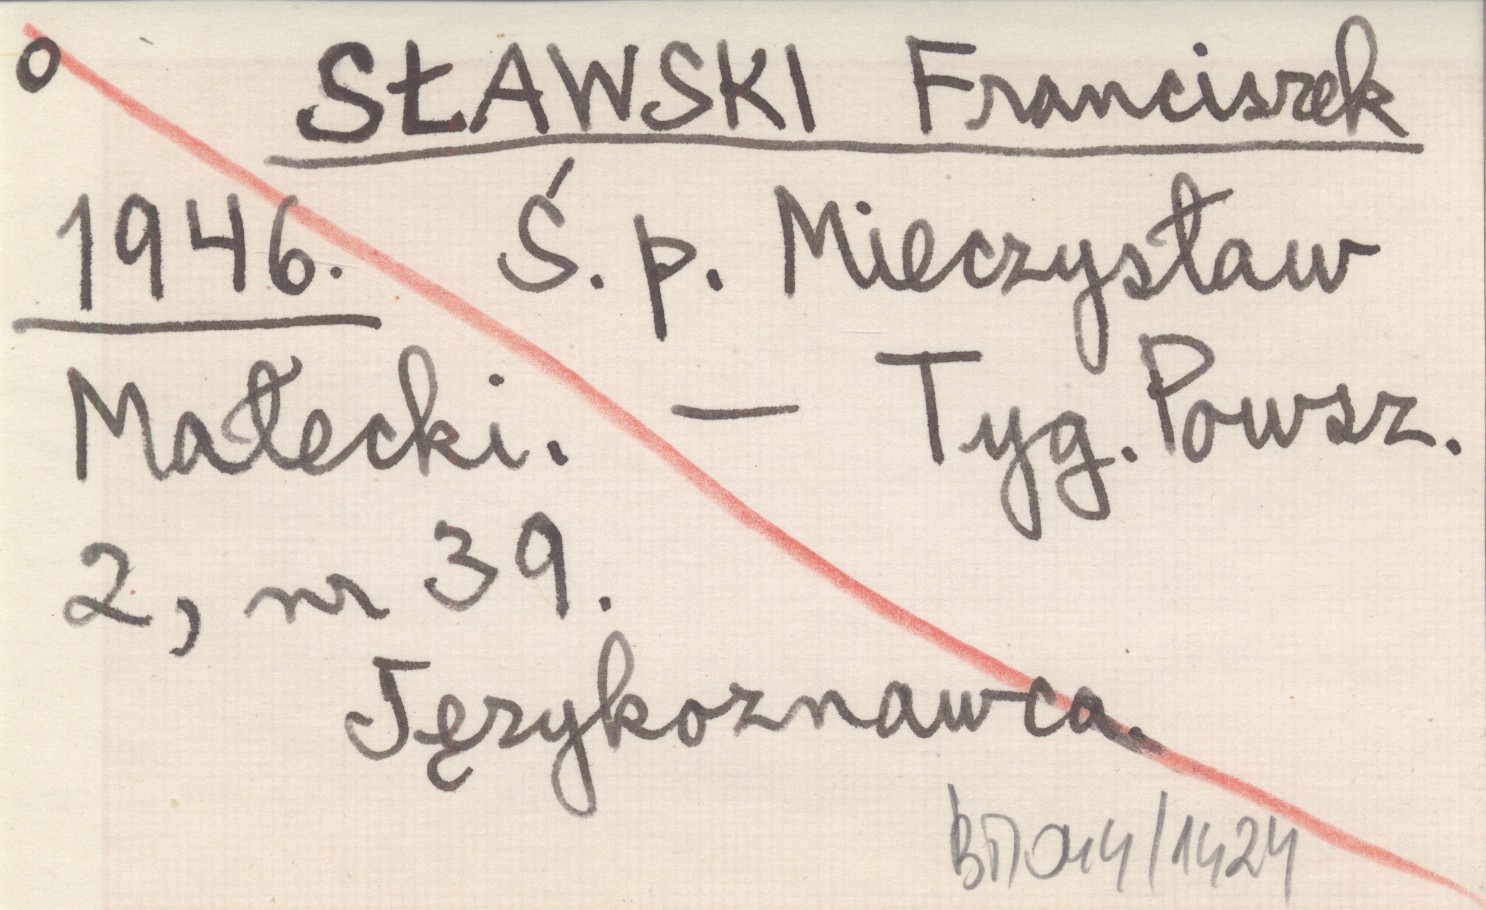 o SŁAWSKI Franciszek
1946. Ś. p. Mieczysław
Małecki. — Tyg. Powsz.
2, nr 39.
Językoznawca.